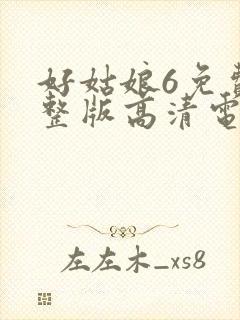 好姑娘6免費
整版高清電
左左木_xs8